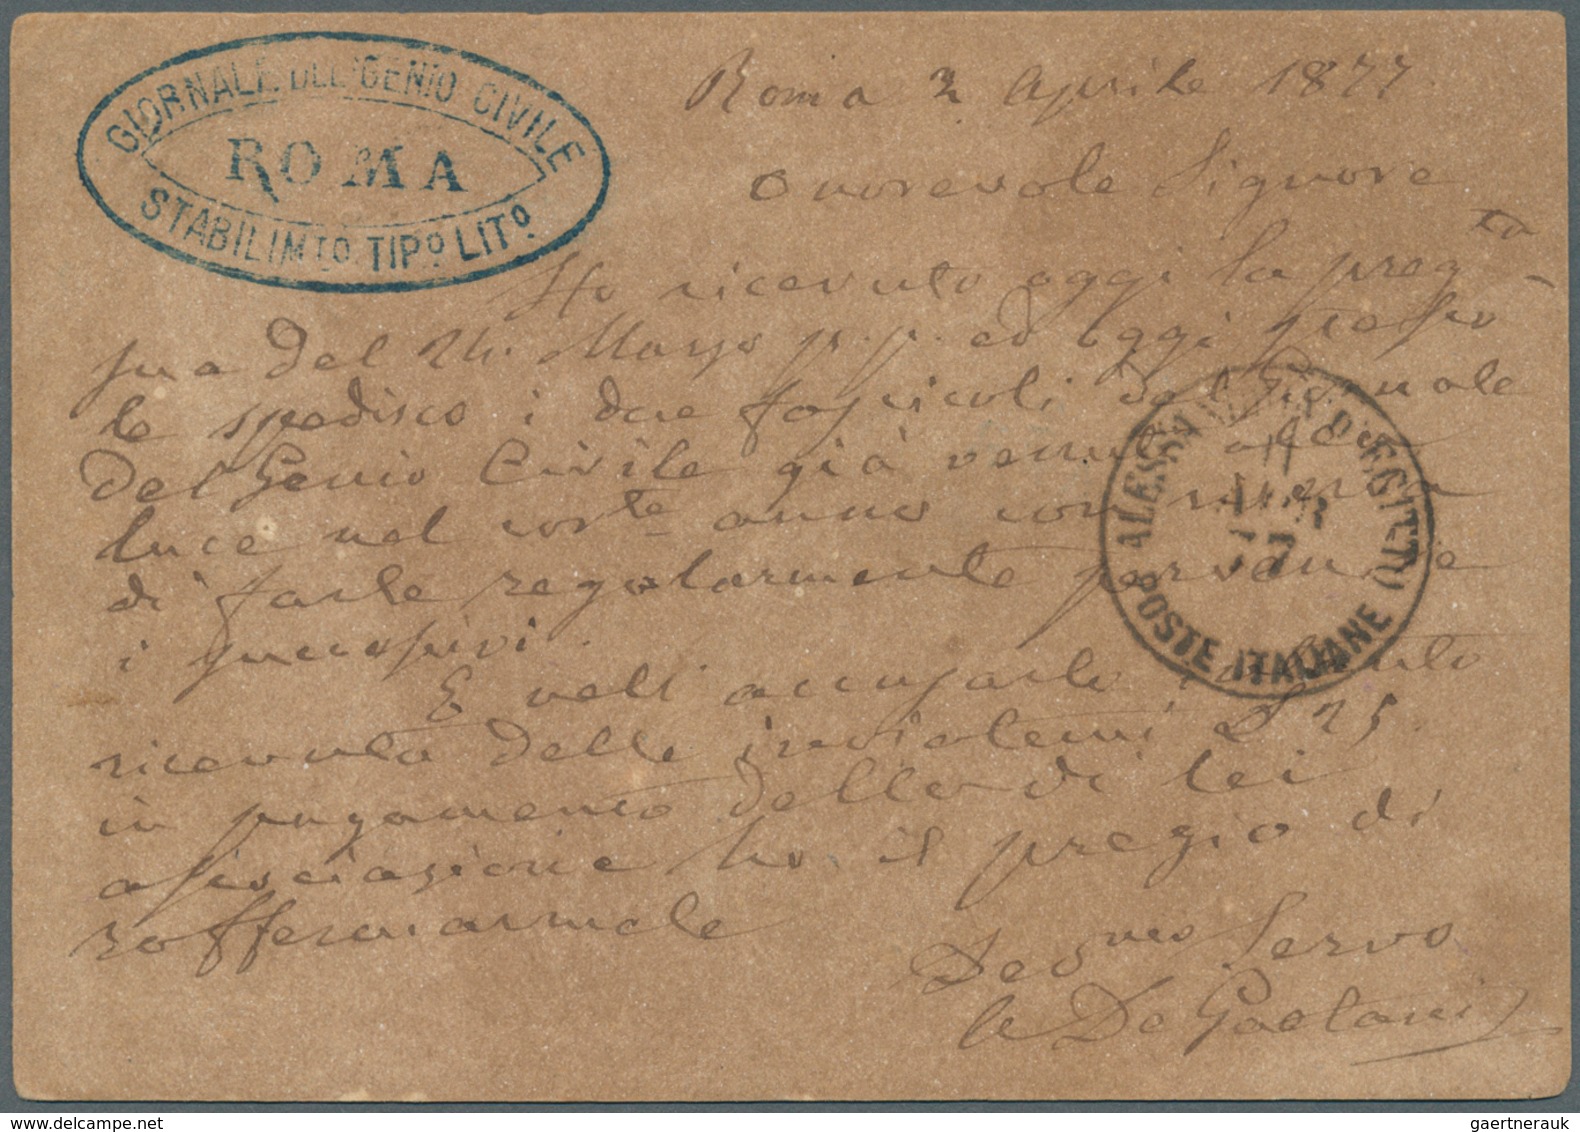 GIORNALE DEL GENIO CIVILE
ROMA
STABILIMTO TIPO LITO
Roma 2 Aprile 1877
Onorevole Signore
Ho ricevuto oggi la pregta
sua del 24. Marzo p. p. ed oggi stesso
le spedisco i due fascicoli del Giornale
del Genio Civile già venuti alla
luce nel corrte anno con riserva
di farle regolarmente pervenire
i successivi.
E nell' accusarle
ricevuta delle inviatemi L 25.
in pagamento della di lei
associazione ho il pregio di
raffermarmele
Devmo Servo
De Gaetani
ALESSANDRIA D'EGITTO
11
APR
77
POSTE ITALIANE
gaertnerauk